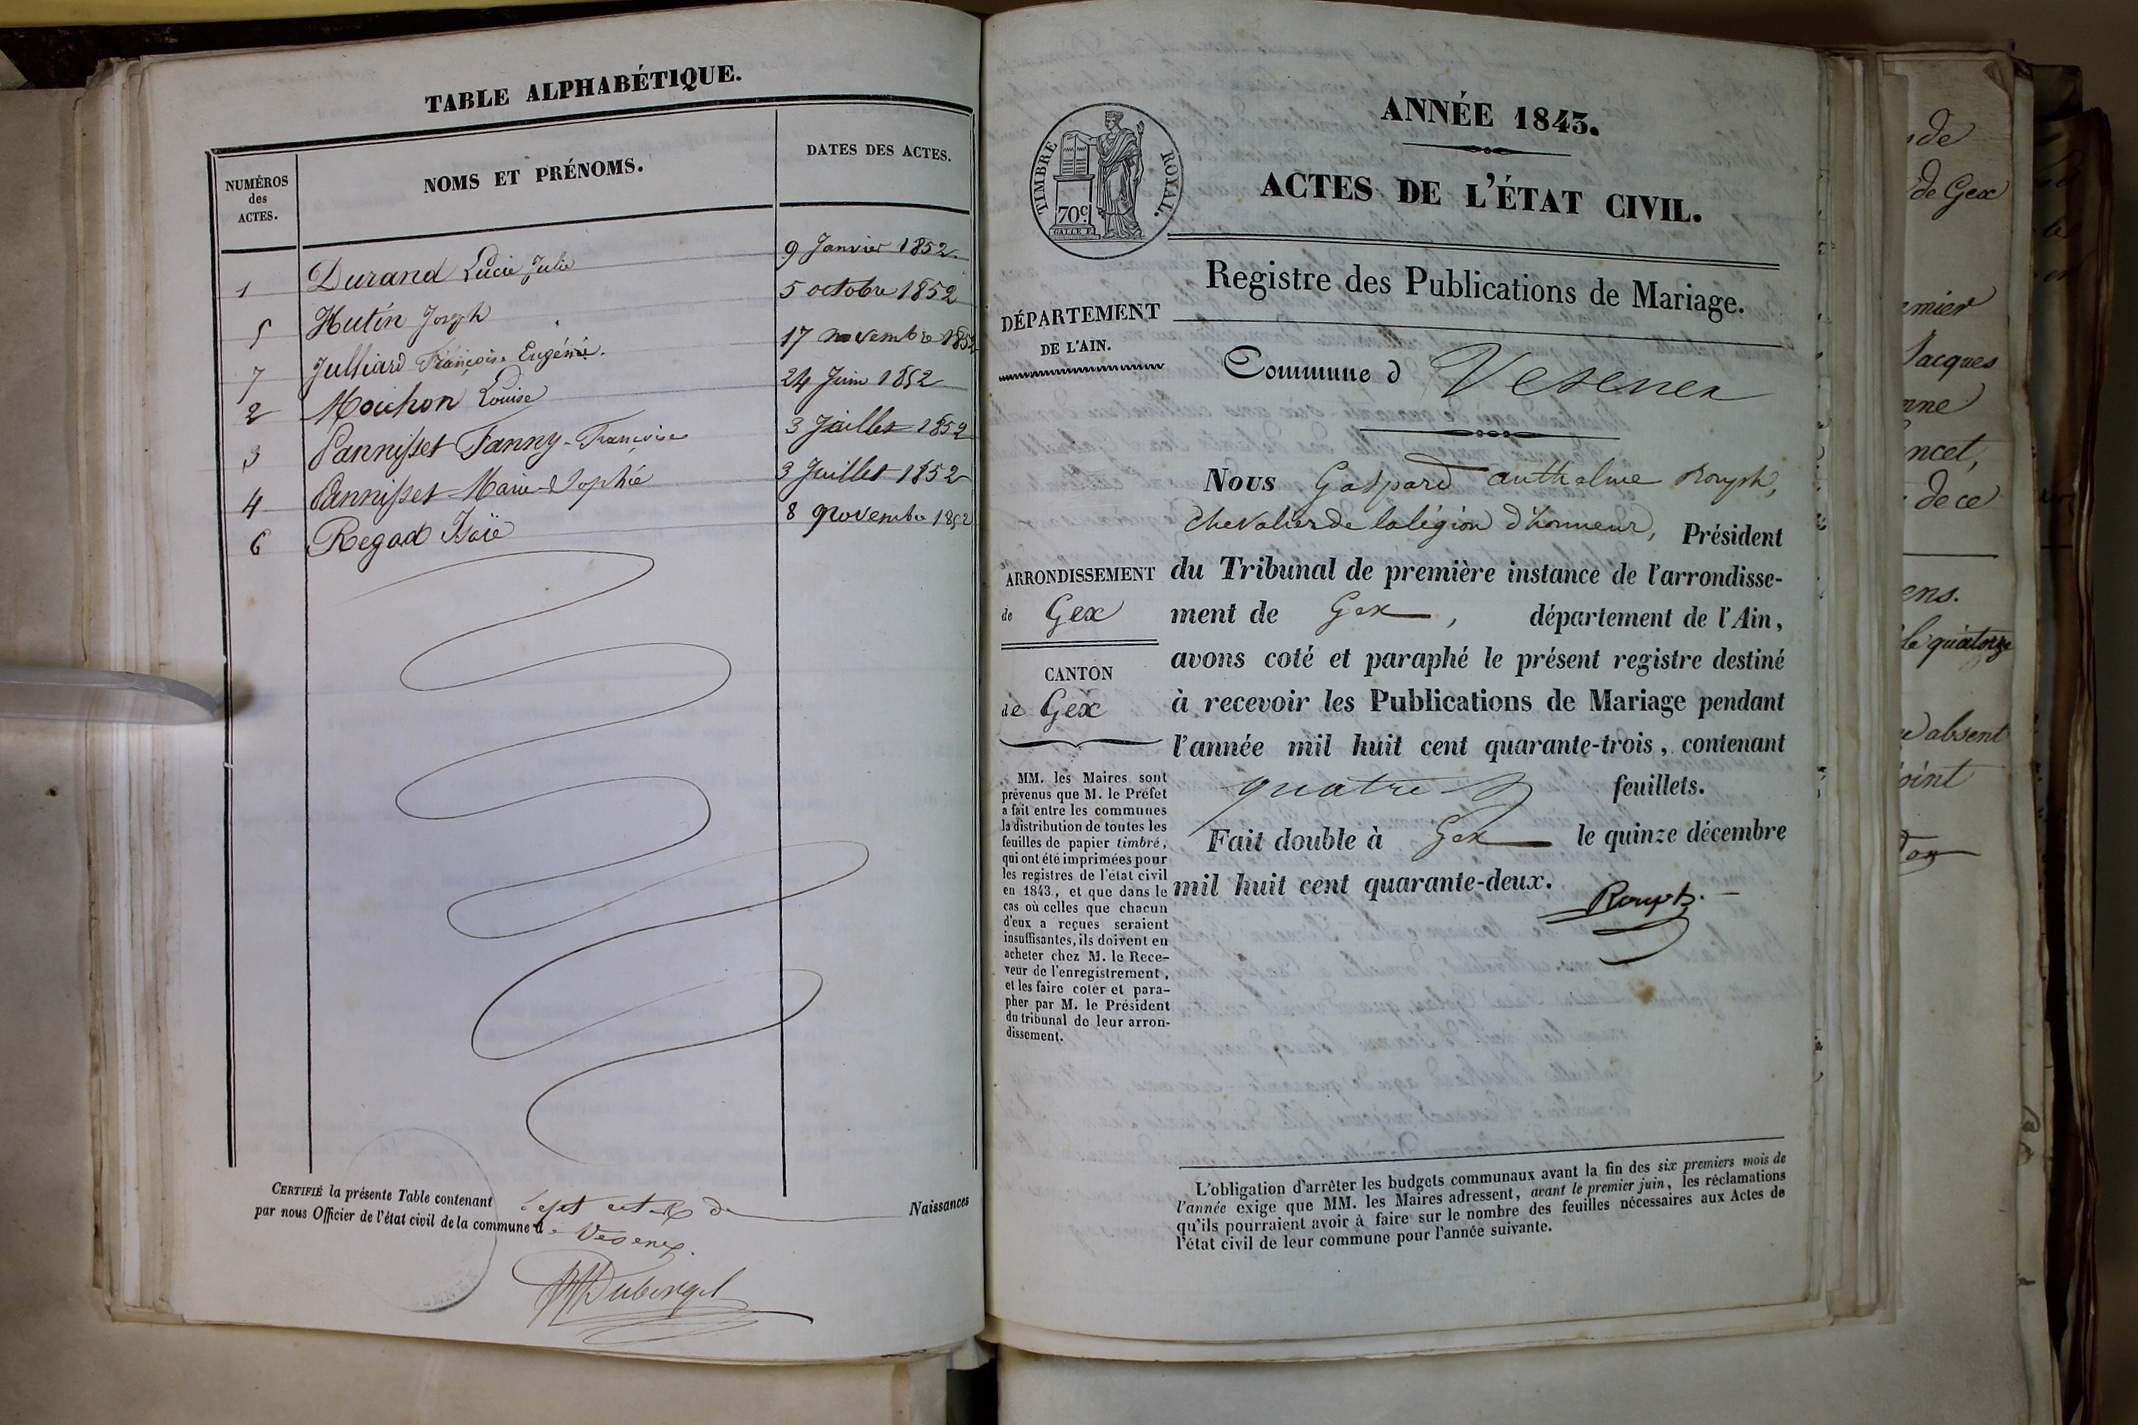 TABLE ALPHABÉTIQUE.
NUMÉROS
des
ACTES.
NOMS ET PRÉNOMS.
DATES DES ACTES.
1 Durand Lucie Julie 9 Janvier 1852.
5 Hutin Joseph 5 octobre 1852
7 Julliard Françoise Eugénie. 17 novembre 1852
2 Mouchon Louise 24 Juin 1852
3 Pannisset Fanny-Françoise 3 Juillet 1852
4 Pannisset Marie-Sophie 3 Juillet 1852
6 Regad Isaïe 8 novembre 1852
CERTIFIÉ la présente Table contenant Sept actes de Naissances
par nous Officier de l'état civil de la commune de Vesenex.
ANNÉE 1843.
ACTES DE L'ÉTAT CIVIL.
TIMBRE ROYAL.
70c.
Registre des Publications de Mariage.
DÉPARTEMENT
DE L'AIN.
Commune d Vesenex
Nous Gaspard anthelme Rouph,
chevalier de la légion d'honneur, Président
du Tribunal de première instance de l'arrondisse-
ment de Gex, département de l'Ain,
avons coté et paraphé le présent registre destiné
à recevoir les Publications de Mariage pendant
l'année mil huit cent quarante-trois, contenant
quatre feuillets.
Fait double à Gex le quinze décembre
mil huit cent quarante-deux.
Rouph.
ARRONDISSEMENT
de Gex
CANTON
de Gex
MM. les Maires sont
prévenus que M. le Préfet
a fait entre les communes
la distribution de toutes les
feuilles de papier timbré,
qui ont été imprimées pour
les registres de l'état civil
en 1843, et que dans le
cas où celles que chacun
d'eux a reçues seraient
insuffisantes, ils doivent en
acheter chez M. le Rece-
veur de l'enregistrement,
et les faire coter et para-
pher par M. le Président
du tribunal de leur arron-
dissement.
L'obligation d'arrêter les budgets communaux avant la fin des six premiers mois de
l'année exige que MM. les Maires adressent, avant le premier juin, les réclamations
qu'ils pourraient avoir à faire sur le nombre des feuilles nécessaires aux Actes de
l'état civil de leur commune pour l'année suivante.
de Gex
Jacques
de ce
le quatorze
absent